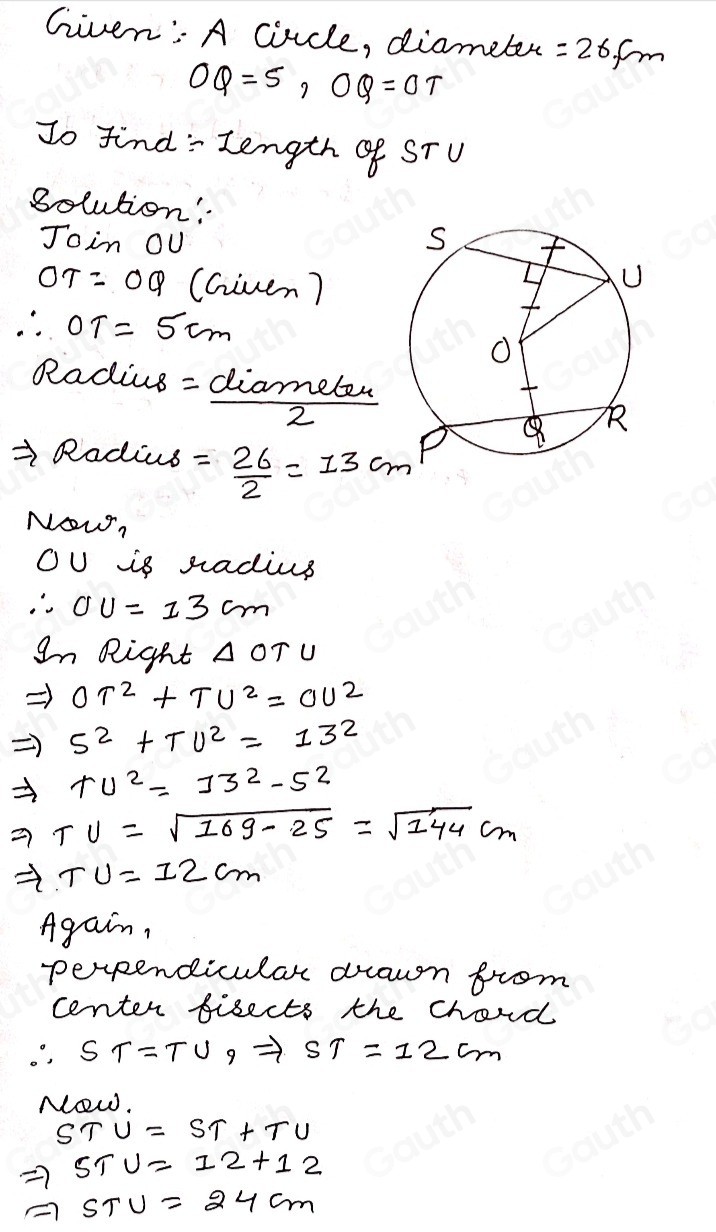 Given :- A Circle, diameter = 26 cm
OQ = 5 , OQ = OT
To Find :- Length of STU
Solution :-
Join OU
OT = OQ (Given)
∴ OT = 5 cm
Radius = diameter / 2
⇒ Radius = 26/2 = 13 cm
S
U
O
P
Q
R
Now,
OU is radius
∴ OU = 13 cm
In Right Δ OTU
⇒ OT² + TU² = OU²
⇒ 5² + TU² = 13²
⇒ TU² = 13² - 5²
⇒ TU = √169 - 25 = √144 cm
⇒ TU = 12 cm
Again,
perpendicular drawn from
center bisects the chord
∴ ST = TU , ⇒ ST = 12 cm
Now.
STU = ST + TU
⇒ STU = 12 + 12
⇒ STU = 24 cm
Gauth